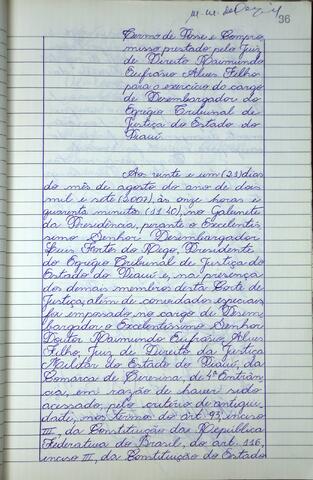 36
Termo de Posse e Compro
misso prestado pelo Juiz
de Direito Raimundo
Eufrásio Alves Filho
para o exercício do cargo
de Desembargador do
Egrégio Tribunal de
Justiça do Estado do
Piauí.
Aos vinte e um (21) dias
do mês de agosto do ano de dois
mil e sete (2007), às onze horas e
quarenta minutos (11:40), no Gabinete
da Presidência, perante o Excelentís
simo Senhor Desembargador
Luís Fortes do Rêgo, Presidente
do Egrégio Tribunal de Justiça do
Estado do Piauí e, na presença
dos demais membros desta Corte de
Justiça, além de convidados especiais
foi empossado no cargo de Desem
bargador o Excelentíssimo Senhor
Doutor Raimundo Eufrásio Alves
Filho, Juiz de Direito da Justiça
Militar do Estado do Piauí, da
Comarca de Teresina, de 4ª Entrân
cia, em razão de haver sido
acessado, pelo critério de antigui
dade, nos termos do art. 93, inciso
III, da Constituição da República
Federativa do Brasil, do art. 116,
inciso II, da Constituição do Estado